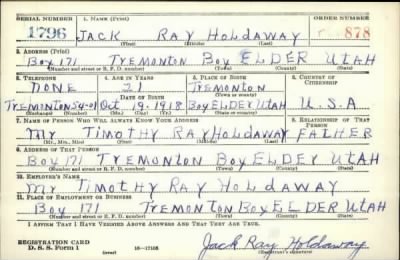 SERIAL NUMBER 1. NAME (Print) ORDER NUMBER
1796 JACK RAY HOLDAWAY 878
(First) (Middle) (Last)
2. ADDRESS (Print)
Box 171 TREMONTON Box ELDER UTAH
(Number and street or R. F. D. number) (Town) (County) (State)
3. TELEPHONE 4. AGE IN YEARS 5. PLACE OF BIRTH 6. COUNTRY OF CITIZENSHIP
NONE 21 TREMONTON
DATE OF BIRTH (Town or county)
TREMONTON 54-01 Oct 19. 1918 Box ELDER UTAH U.S.A
(Exchange) (Number) (Mo.) (Day) (Yr.) (State or country)
7. NAME OF PERSON WHO WILL ALWAYS KNOW YOUR ADDRESS 8. RELATIONSHIP OF THAT PERSON
Mr TIMOTHY RAY HOLDAWAY FATHER
(Mr., Mrs., Miss) (First) (Middle) (Last)
9. ADDRESS OF THAT PERSON
Box 171 TREMONTON Box ELDER UTAH
(Number and street or R. F. D. number) (Town) (County) (State)
10. EMPLOYER'S NAME
Mr TIMOTHY RAY HOLDAWAY
11. PLACE OF EMPLOYMENT OR BUSINESS
Box 171 TREMONTON Box ELDER UTAH
(Number and street or R. F. D. number) (Town) (County) (State)
I AFFIRM THAT I HAVE VERIFIED ABOVE ANSWERS AND THAT THEY ARE TRUE.
REGISTRATION CARD
D. S. S. Form 1 (over) 16—17105 Jack Ray Holdaway
(Registrant's signature)